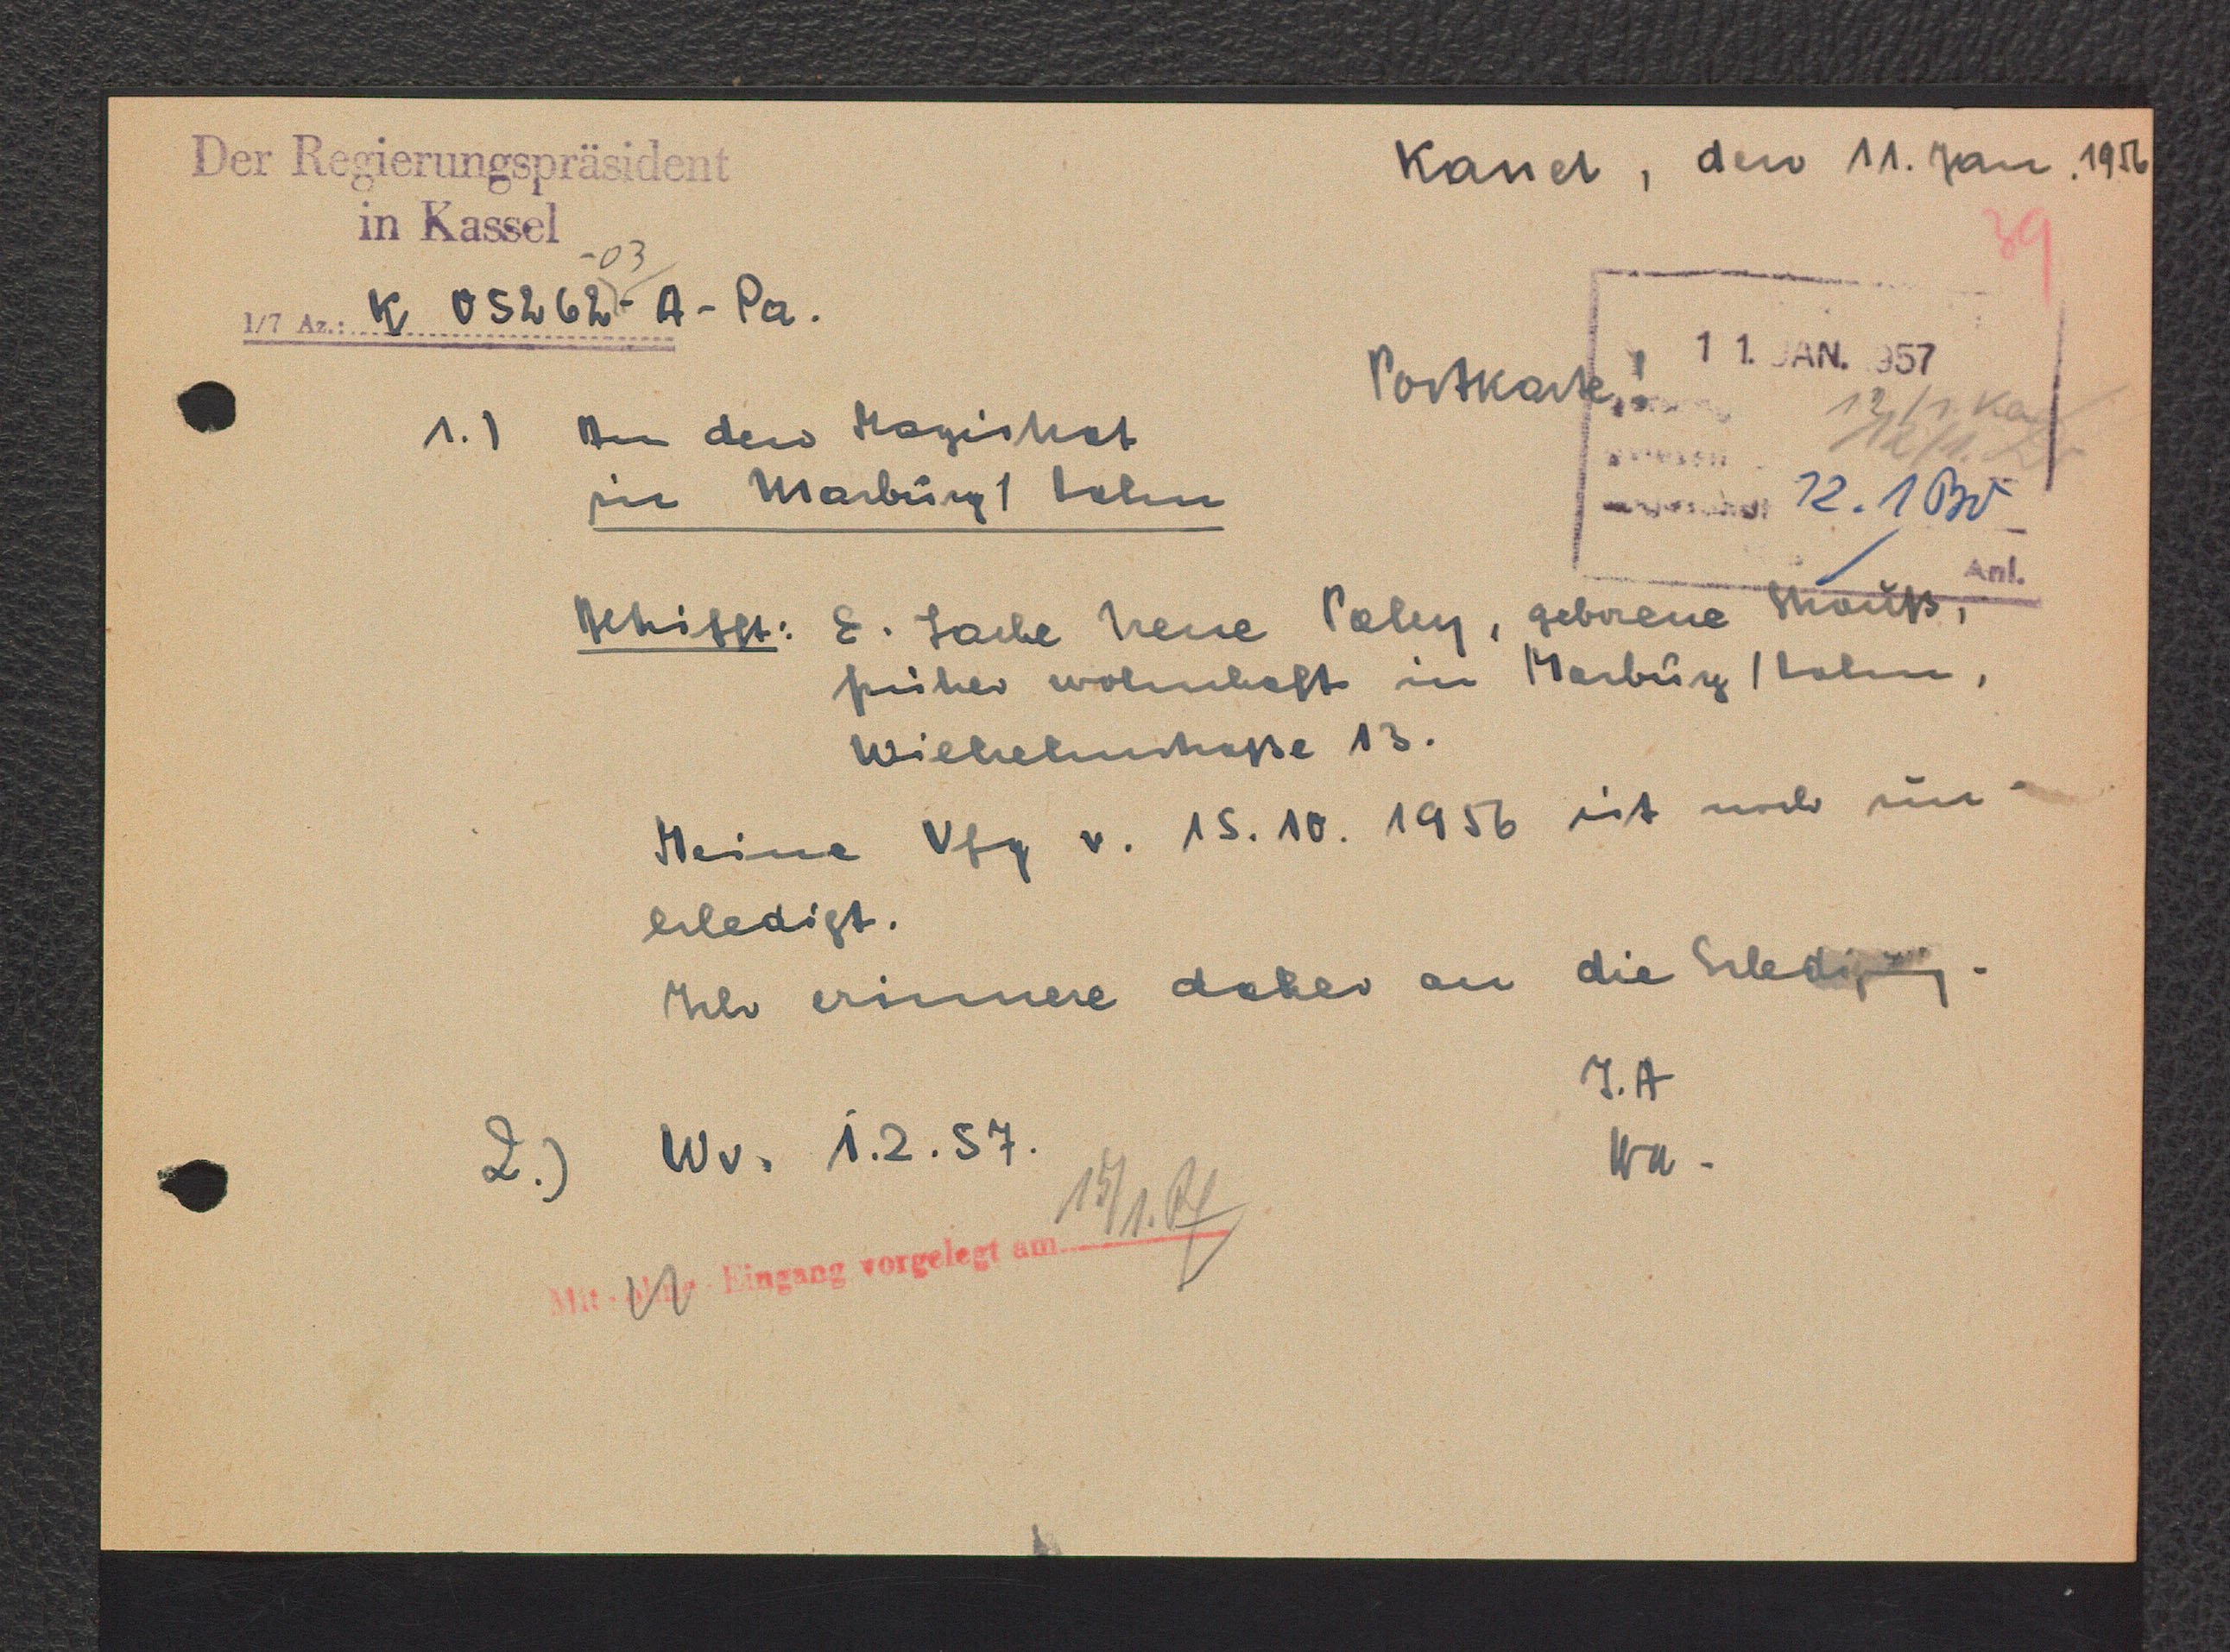 Der Regierungspräsident
in Kassel
-03
1/7 Az.: K 05262 - A - Pa.
Kassel, den 11. Jan. 1956
39
11. JAN. 1957
12.1
Anl.
Postkarte!
1.) An den Magistrat
in Marburg / Lahn
Betrifft: E. Sache Irene Paley, geborene Strauß,
früher wohnhaft in Marburg / Lahn,
Wilhelmstraße 13.
Meine Vfg v. 15. 10. 1956 ist noch un-
erledigt.
Ich erinnere daher an die Erledigung.
J. A
2.) Wv. 1.2.57.
Mit - ohne - Eingang vorgelegt am 15/1.